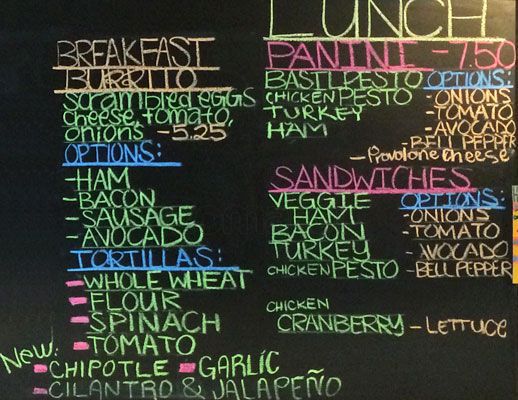 BREAKFAST
BURRITO
scrambled eggs
cheese, tomato,
onions - 5.25
OPTIONS:
- HAM
- BACON
- SAUSAGE
- AVOCADO
TORTILLAS:
- WHOLE WHEAT
- FLOUR
- SPINACH
- TOMATO
New!
- CHIPOTLE - GARLIC
- CILANTRO & JALAPEÑO
LUNCH
PANINI - 7.50
BASIL PESTO
CHICKEN PESTO
TURKEY
HAM
OPTIONS:
- ONIONS
- TOMATO
- AVOCADO
- BELL PEPPER
- Provolone cheese
SANDWICHES
VEGGIE
HAM
BACON
TURKEY
CHICKEN PESTO
OPTIONS:
- ONIONS
- TOMATO
- AVOCADO
- BELL PEPPER
CHICKEN
CRANBERRY - LETTUCE